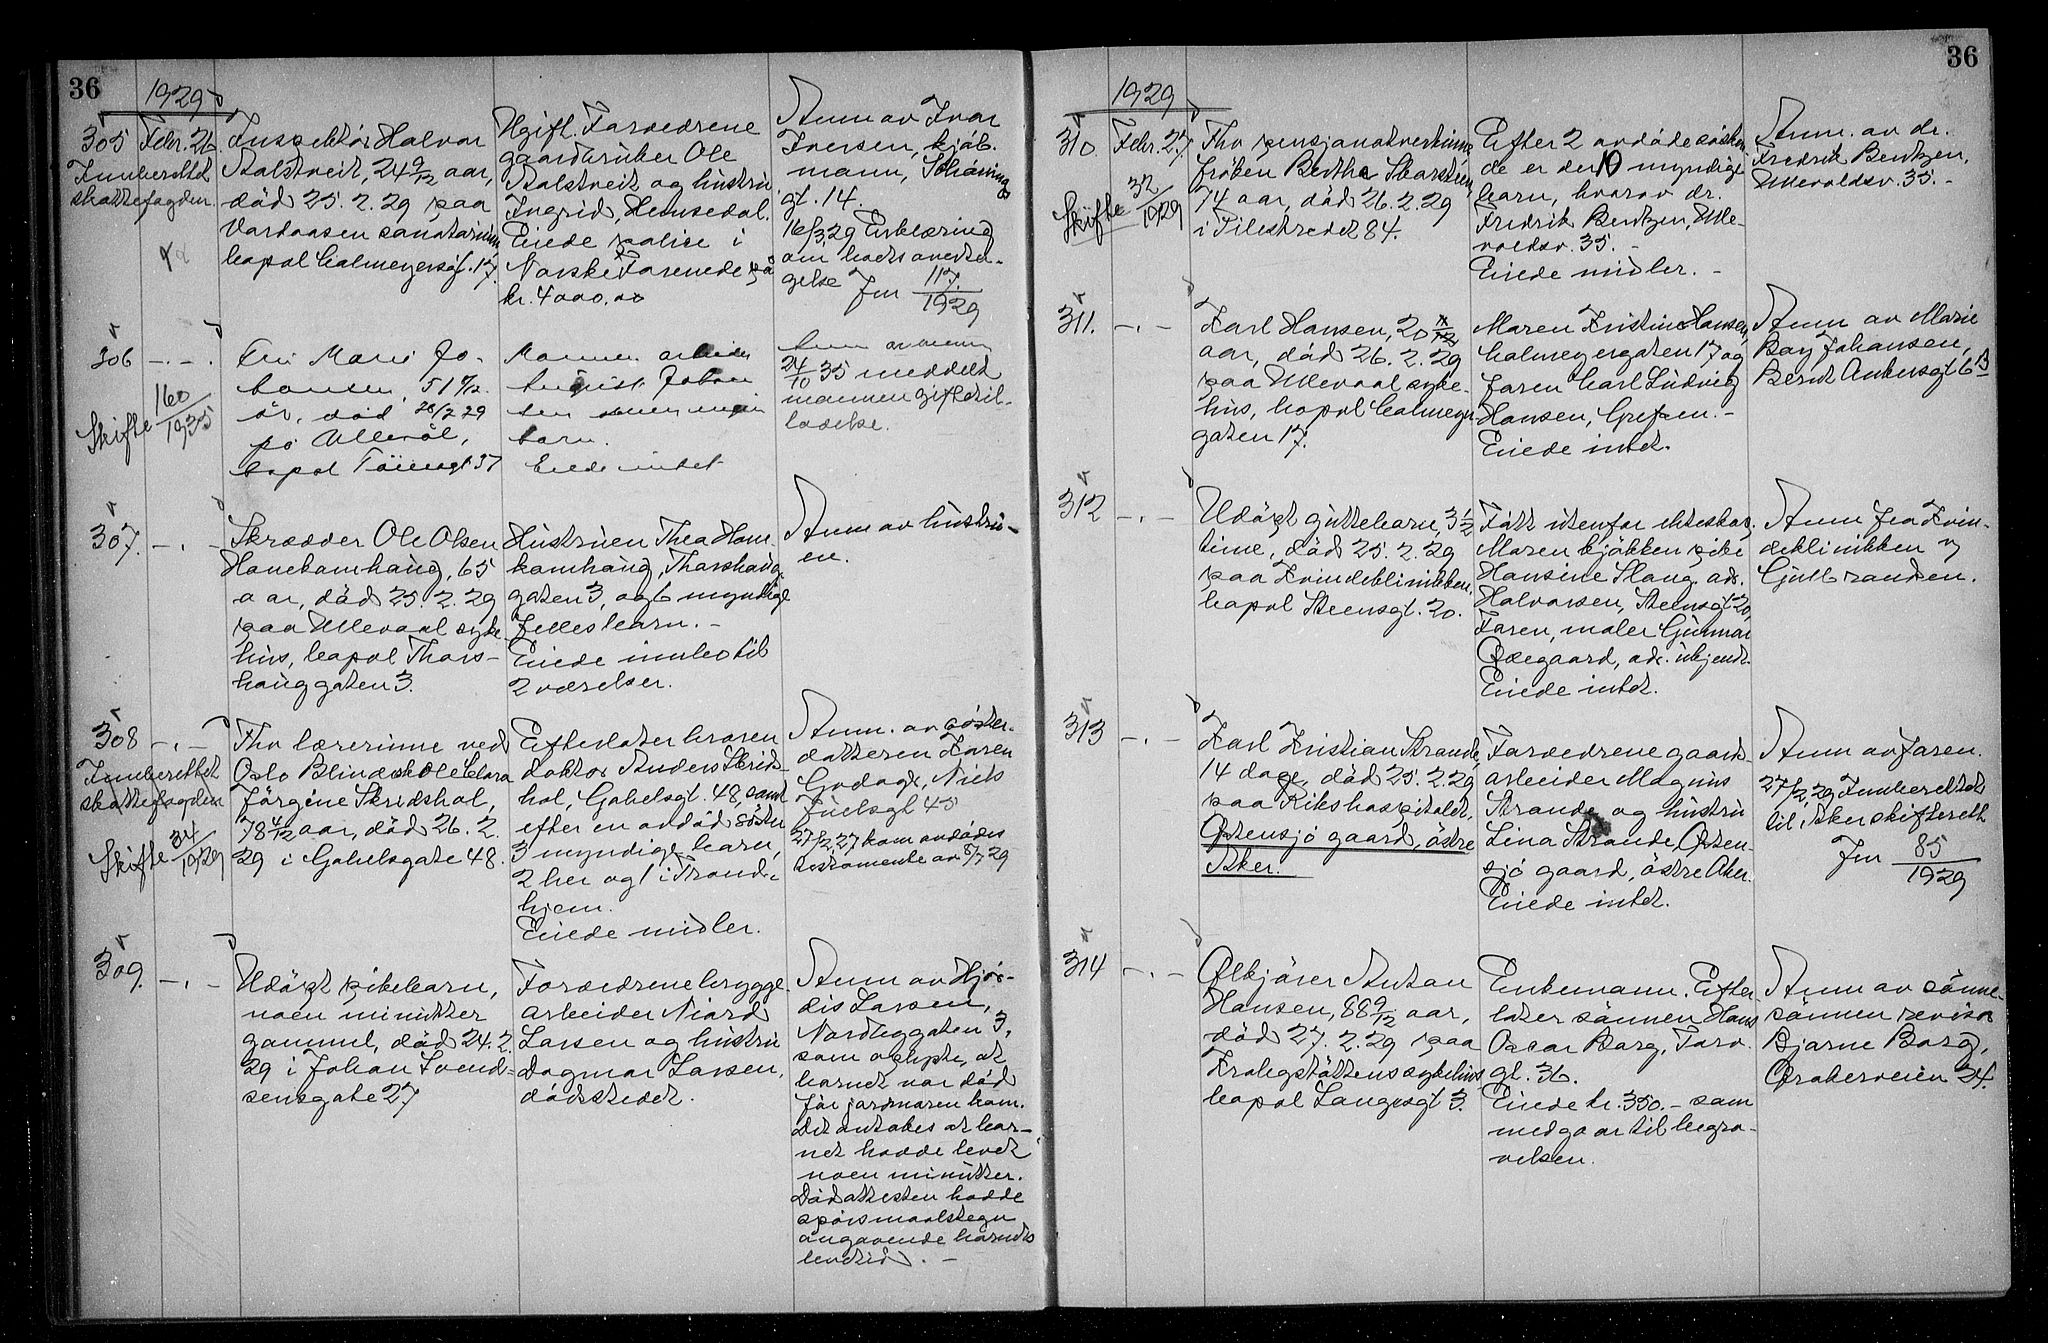 36
1929
305 Febr. 26.
Innberettet
skattefogden.
Inspektør Halvor
Aalstveit, 24 9/12 aar,
död 25. 2. 29 paa
Vardaasen sanatorium
bopæl Calmeyersgt. 17.
Ugift. Forældrene
gaardbruker Ole
Aalstveit og hustru
Ingrid, Hemsedal.
Eiede polise i
Norske Forenede på
kr. 4000.00
Anm. av Ivar
Iversen, kjöb-
mann, Schönings
gt. 14.
16/3 29 Erklæring
om bodsoverta-
gelse Jnr 117/1929
306 -.-
Skifte 160/1935
Fru Marie Jo-
hansen, 51
år, död 26/2 29
på Ullevål,
bopæl Töiengt 37
Mannen arbeider
August Johan
sen
barn.
Eiede intet
Anm av mannen
24/10 35 meddelt
mannen giftetil-
ladelse.
307. -.-
Skrædder Ole Olsen
Hanekamhaug, 65
aar, död 25. 2. 29
paa Ullevaal syke-
hus, bopæl Thors-
hauggaten 3.
Hustruen Thea Hane
kamhaug, Thorshaug
gaten 3, og 6 myndige
fellesbarn. -
Eiede innbo til
2 værelser.
Anm av hustru-
en.
308 -.-
Innberettet
skattefogden
Skifte 34/1929
Fhv lærerinne ved
Oslo Blindeskole Clara
Jörgine Skridshol,
78 4/12 aar, död 26. 2.
29 i Gabelsgate 48.
Efterlater broren
doktor Anders Skrids-
hol, Gabelsgt. 48, samt
efter en avdöd söster
3 myndige barn,
2 her og 1 i Trond-
hjem.
Eiede midler.
Anm. av söster-
datteren Karen
Godager, Niels
Juelsgt 45
27/2 27 kom avdödes
testamente av 8/7 29
309. -.-
Udöpt pikebarn,
noen minutter
gammel, död 24. 2.
29 i Johan Svend-
sensgate 27
Forældrene brygge-
arbeider Niard
Larsen og hustru
Dagmar Larsen,
dödsstedet.
Anm av Hjör-
dis Larsen,
Nordbyggaten 3,
som oplyste, at
barnet var död
för jormoren kom.
Det antakes at bar-
net hadde levet
noen minutter.
Dödsattesten hadde
spörsmaalstegn
angaaende barnets
levetid. -
36
1929
310. Febr. 27.
Skifte 32/1929
Fhv pensjonatvertinne
fröken Berthe Skarstein
74 aar, död 26. 2. 29
i Pilestredet 84.
Efter 2 avdöde sösken
de er der 10 myndige
barn, hvorav dr.
Fredrik Bentzen, Ulle-
voldsv. 35. -
Eiede midler. -
Anm. av dr.
Fredrik Bentzen,
Ullevoldsv. 35. -
311. -.-
Karl Hansen, 20 11/12
aar, död 26. 2. 29
paa Ullevaal syke-
hus, bopæl Calmeyer
gaten 17.
Moren Kristine Hansen,
Calmeyersgaten 17 og
faren Carl Ludvig
Hansen, Grefsen. -
Eiede intet.
Anm av Marie
Bay Johansen,
Bernt Ankersgt 6 B
312 -.-
Udöpt guttebarn, 3 1/2
time, död 25. 2. 29
paa Kvindeklinikken,
bopæl Steensgt. 20.
Fött utenfor ekteskap.
Moren kjökkenpike
Hansine Slang, adr.
Halvorsen, Steensgt 20,
Faren, maler Gunnar
Ödegaard, adr. ukjendt.
Eiede intet.
Anm fra Kvin-
deklinikken v
Gulbrandsen.
313 -.-
Karl Kristian Strande,
14 dage, död 25. 2. 29
paa Rikshospitalet,
Östensjö gaard, östre
Aker.
Forældrene gaards
arbeider Magnus
Strande og hustru
Lina Strande, Östen-
sjö gaard, östre Aker.
Eiede intet.
Anm av faren.
27/2 29 Innberettet
til Aker skifterett
Jnr 85/1929
314 -.-
Ölkjörer Anton
Hansen, 88 9/12 aar,
död 27. 2. 29 paa
Krohgstöttens sykehus
bopæl Langesgt 3.
Enkemann. Efter-
later sönnen Hans
Oscar Borg, Torv-
gt. 36.
Eiede kr. 350.- som
medgaar til begra-
velsen.
Anm av sönne-
sönnen revisor
Bjarne Borg,
Ørakerveien 34.